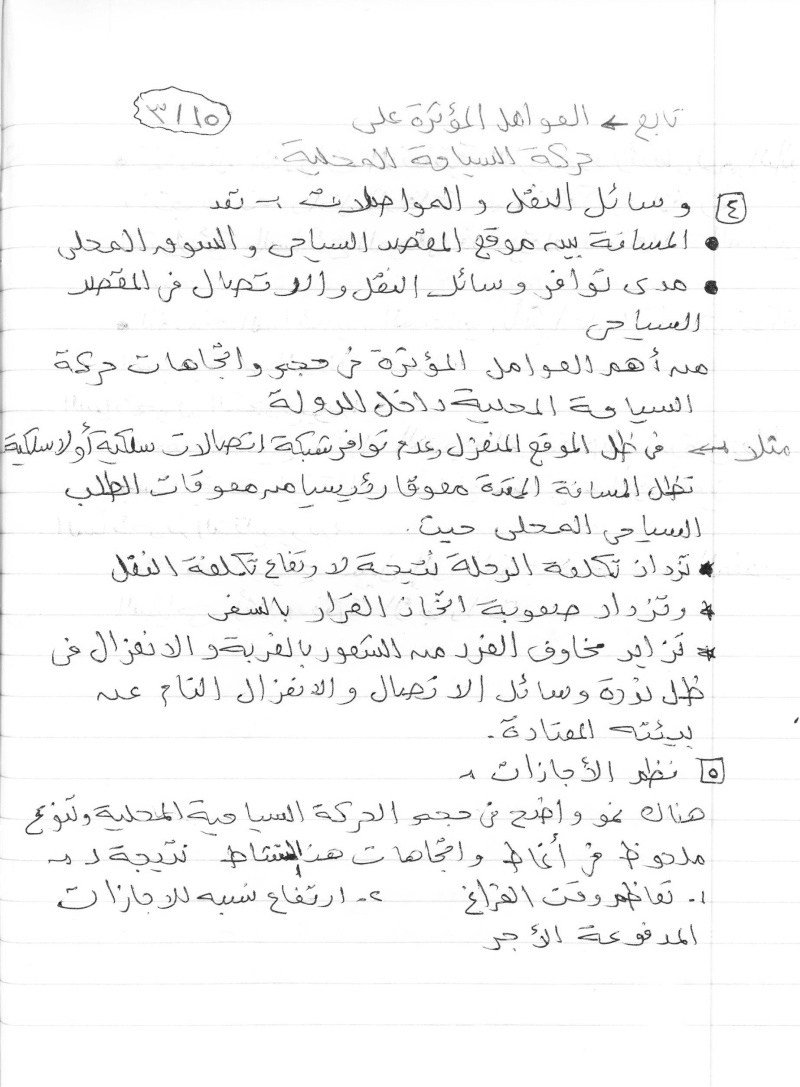 تابع ← العوامل المؤثرة على
٣/١٥
حركة السياحة المحلية.
٤ وسائل النقل والمواصلات :- تعد
• المسافة بين موقع المقصد السياحى والسوق المحلى
• مدى توافر وسائل النقل والاتصال فى المقصد
السياحى
من أهم العوامل المؤثرة فى حجم واتجاهات حركة
السياحة المحلية داخل الدولة
مثلا ← فى ظل الموقع المنعزل وعدم توافر شبكة اتصالات سلكية أولاسلكية
تظل المسافة الممتدة معوقا رئيسيا من معوقات الطلب
السياحى المحلى حيث.
* تزداد تكلفة الرحلة نتيجة لارتفاع تكلفة النقل
* وتزداد صعوبة اتخاذ القرار بالسفر
* تزايد مخاوف الفرد من الشعور بالغربة والانعزال فى
ظل ندرة وسائل الاتصال والانعزال التام عن
بيئته المعتادة.
٥ نظم الأجازات :-
هناك نمو واضح فى حجم الحركة السياحية المحلية وتنوع
ملحوظ فى أنماط واتجاهات هذا النشاط نتيجة لـ :-
١- تعاظم وقت الفراغ ٢- ارتفاع نسبه للاجازات
المدفوعة الأجر